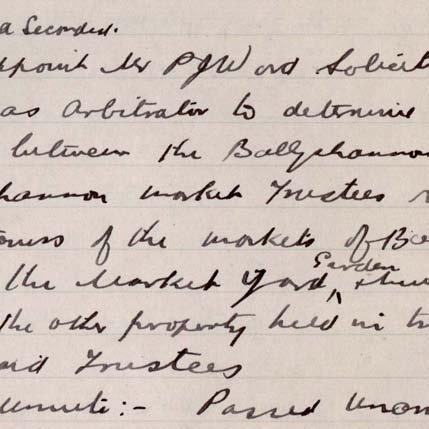 a Seconded.
ppoint Mr P J Ward Solicit
as Arbitrator to determine
between the Ballyshannon
hannon market Trustees
of the markets of Ba
the Market Yard, Garden
the other property held in tr
aid Trustees
:- Passed Unan